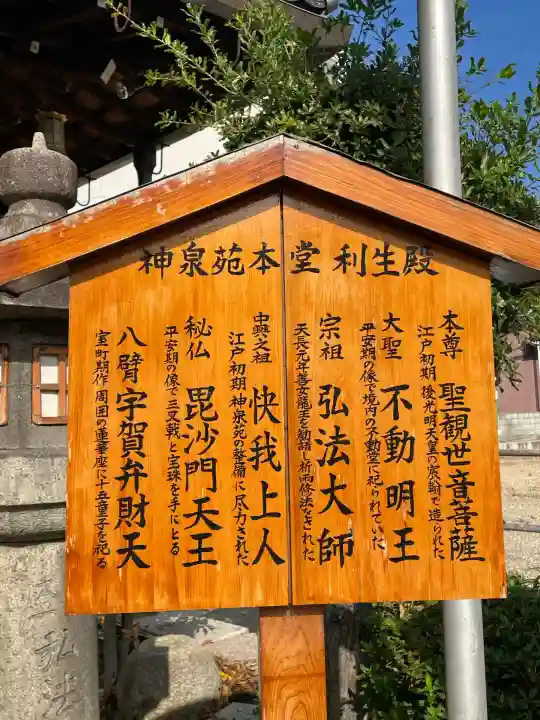 神泉苑本堂利生殿
本尊 聖観世音菩薩
江戸初期 後光明天皇の宸翰で造られた
大聖 不動明王
平安期の像で境内の不動堂に祀られていた
宗祖 弘法大師
天長元年善女龍王を勧請し祈雨修法をされた
中興之祖 快我上人
江戸初期 神泉苑の整備に尽力された
秘仏 毘沙門天王
平安期の像で三叉戟と宝珠を手にとる
八臂 宇賀弁財天
室町期作 周囲の蓮華座に十五童子を祀る
弘法